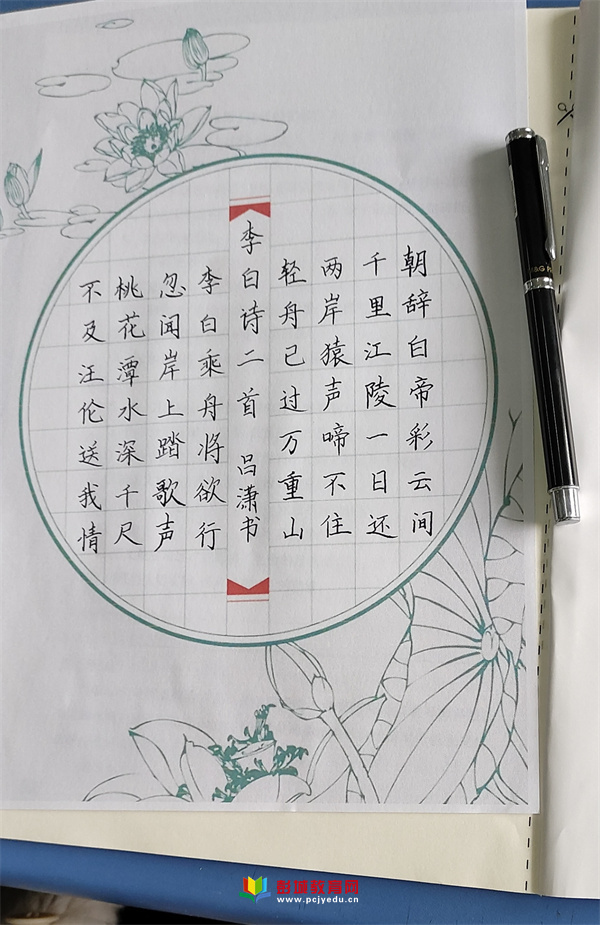 朝辞白帝彩云间
千里江陵一日还
两岸猿声啼不住
轻舟已过万重山
李白诗二首 吕潇书
李白乘舟将欲行
忽闻岸上踏歌声
桃花潭水深千尺
不及汪伦送我情
彭城教育网
www.pcjyedu.cn